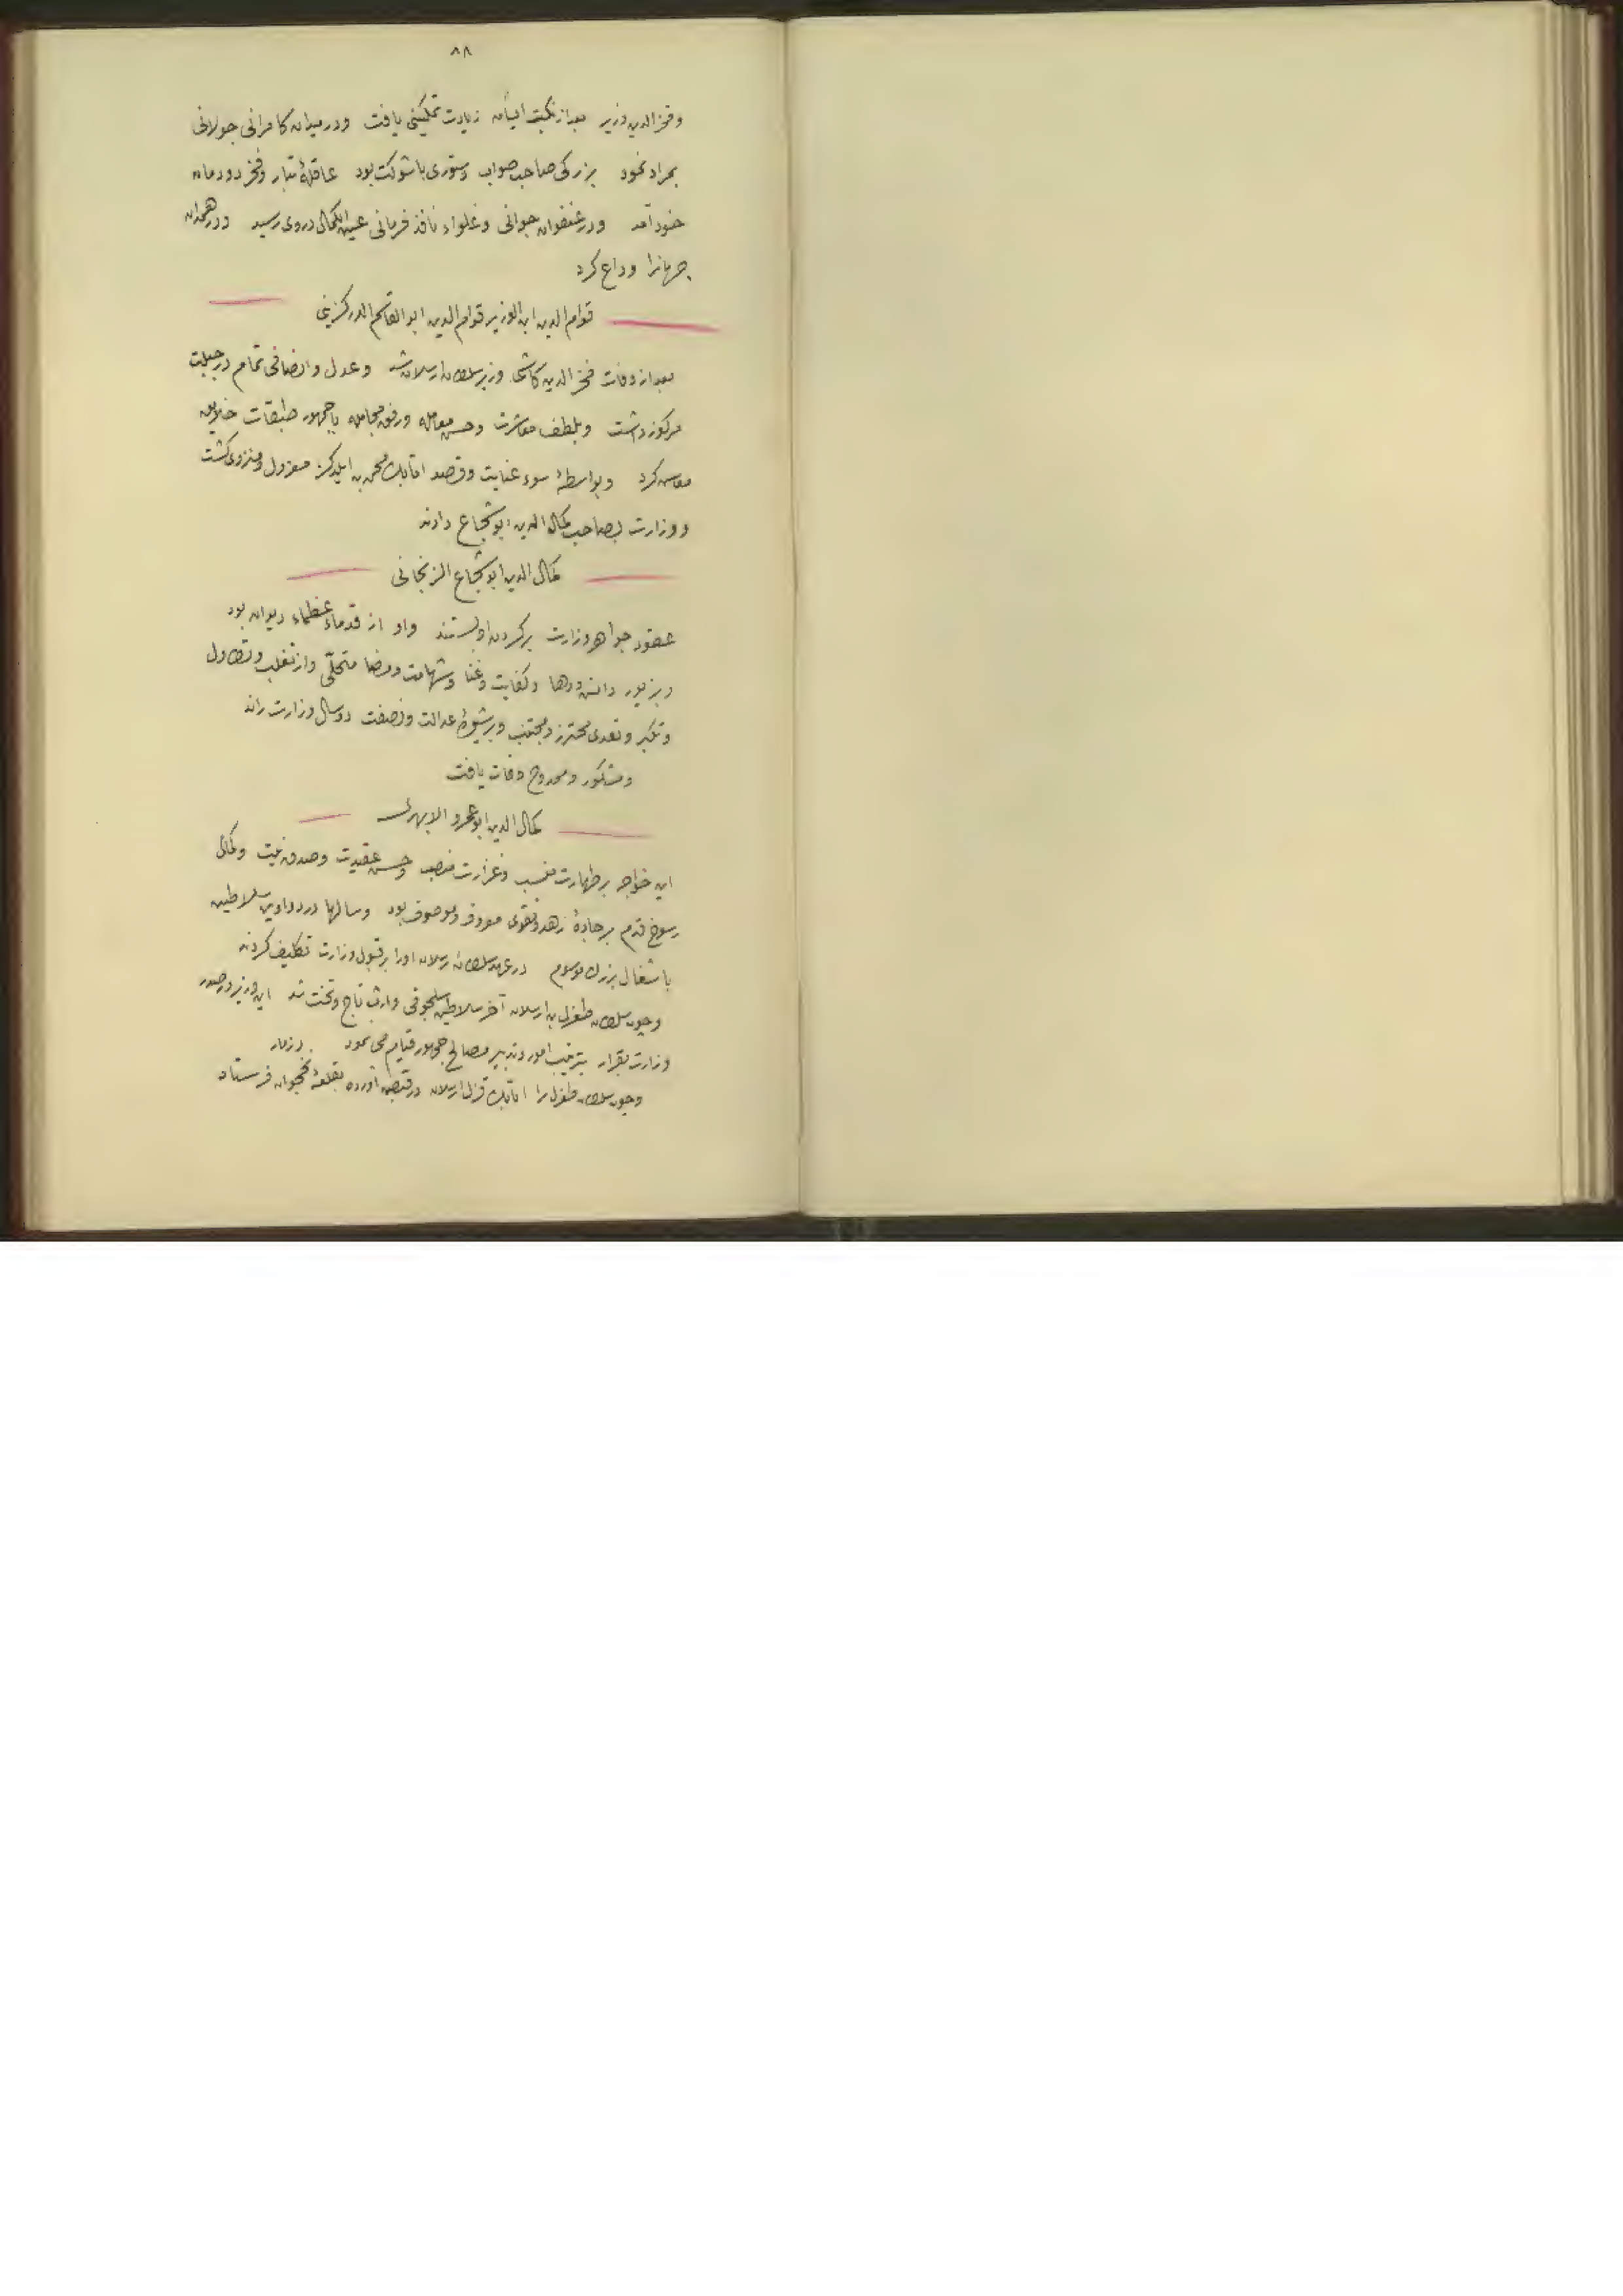 ۸۸
وفخرالدین وزیر بعد از نکبت ایشان زیادت تمکینی یافت ودر میدان کامرانی جولانی
بمراد نمود بزرگی صاحب صواب دستوری باشوکت بود عاقلهٔ تبار وفخر دودمان
خود آمد ودر عنفوان جوانی وغلواء نافذ فرمانی عین الکمال دروی رسید ودر همدان
جهانرا وداع کرد
قوام الدین ابن الوزیر قوام الدین ابوالقاسم الدرکزینی
بعد از وفات فخر الدین کاشی وزیر سلطان ارسلان شد وعدل وانصافی تمام در جبلت
مرکوز داشت وبلطف معاشرت وحسن معامله ورفق مجامله باجمهور طبقات خلایق
معاش کرد وبواسطهٔ سوء عنایت وقصد اتابک محمد بن ایلدکز معزول ومنزوی گشت
ووزارت بصاحب کمال الدین ابوشجاع دادند
کمال الدین ابوشجاع الزنجانی
عقود جواهر وزارت برگردن او بستند واو از قدماء عظماء دیوان بود
وبزیور دانش ودها وکفایت وغنا وشهامت ومضا متحلّی واز تغلب وتطاول
وتکبر وتعدی محترز ومجتنب وبر شیوهٔ عدالت ونصفت دو سال وزارت راند
ومشکور وممدوح وفات یافت
کمال الدین ابوعمرو الابهری
این خواجه بر طهارت منسب وغزارت منصب وحسن عقیدت وصدق نیت وکمال
رسوخ قدم برجادهٔ زهد وتقوی معروف وموصوف بود وسالها در دواوین سلاطین
باشغال بزرگ موسوم در عهد سلطان ارسلان اورا بر قبول وزارت تکلیف کردند
وچون سلطان طغرل بن ارسلان آخر سلاطین سلجوقی وارث تاج وتخت شد این وزیر در صدر
وزارت بقرار بترتیب امور وتدبیر مصالح جمهور قیام می نمود
وچون سلطان طغرل را اتابک قزل ارسلان در قبضه آورده بقلعهٔ نخجوان فرستاد